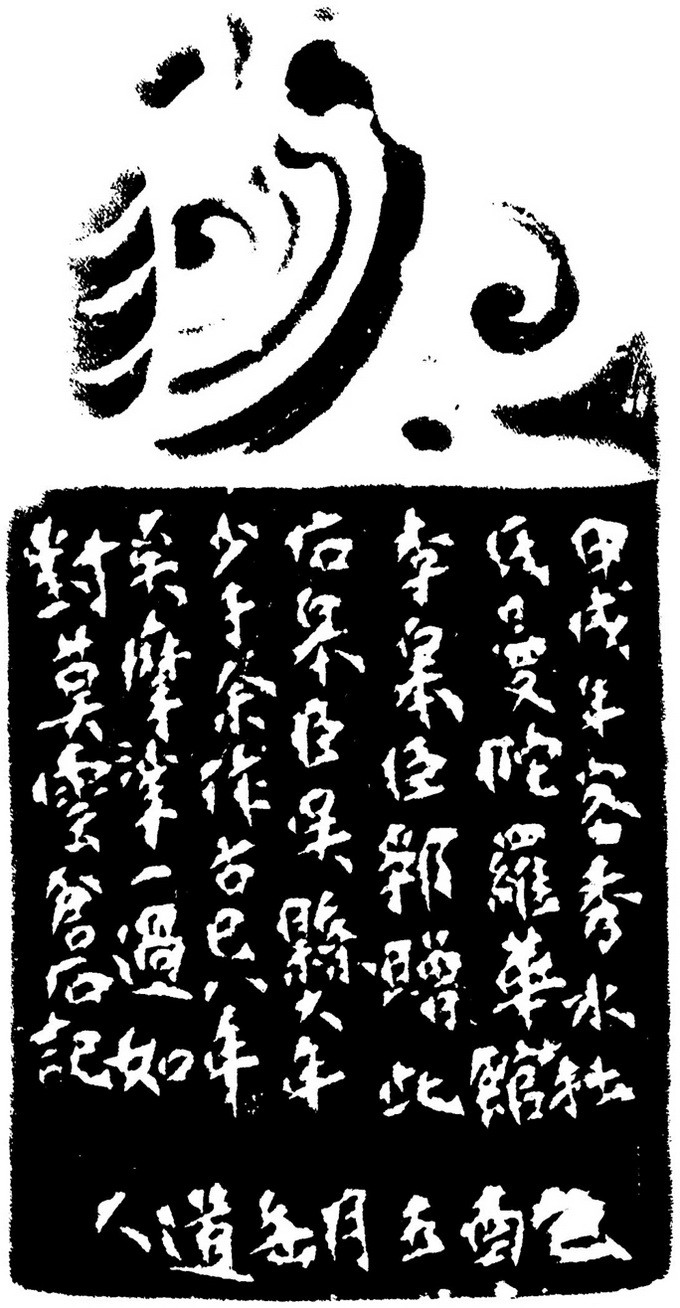 甲戌年客秀水杜
氏曼陀羅華館
李杲臣郵贈此
石杲臣吳縣人年
少于余作古已八年
矣摩挲一過如
對莫雲倉石記
乙酉五月缶道人